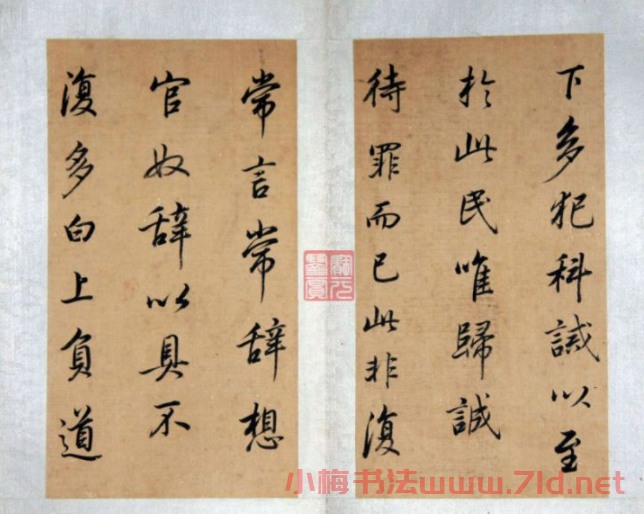 下多犯科誡以至
於此民唯歸誠
待罪而已此非復
常言常辭想
官奴辭以具不
復多白上負道
小梅书法www.7ld.net